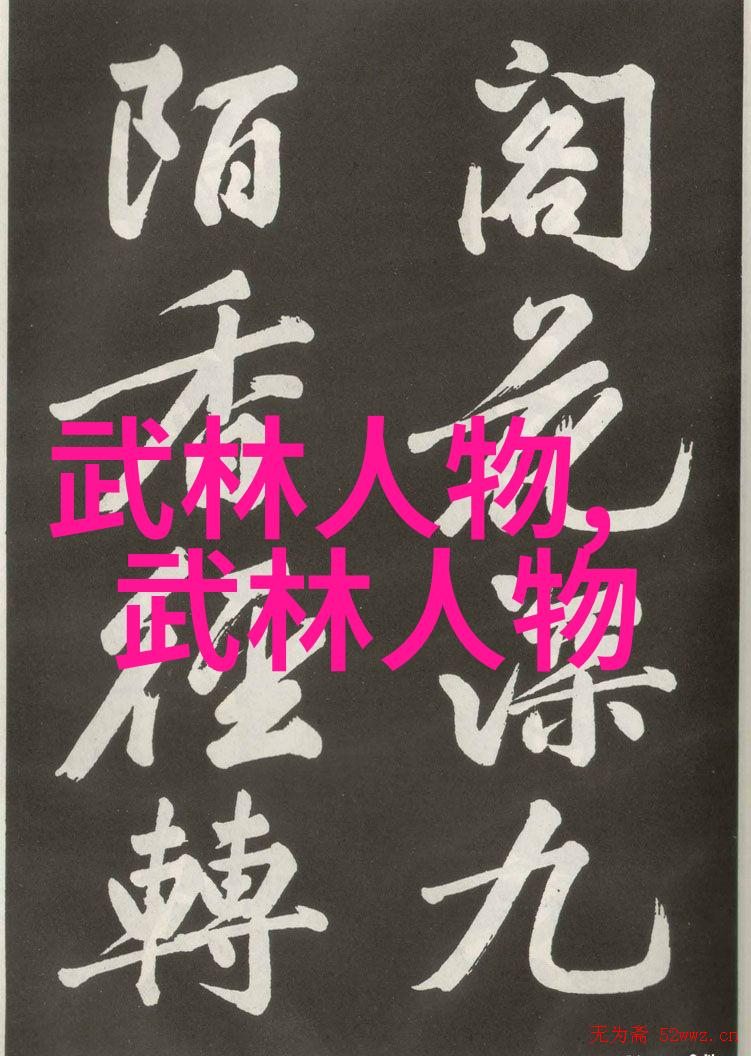 閣花深九
陌香徑轉
武林人物,
武林人物
无为斋 52wwz.cn